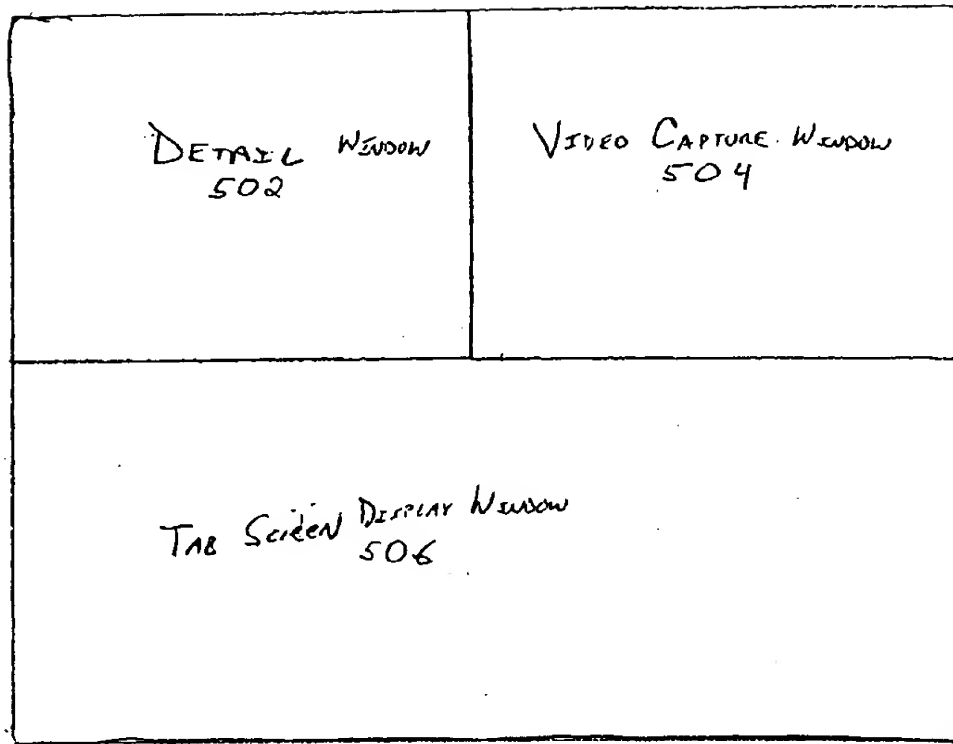 DETAIL WINDOW
502
VIDEO CAPTURE WINDOW
504
TAB SCREEN DISPLAY WINDOW
506